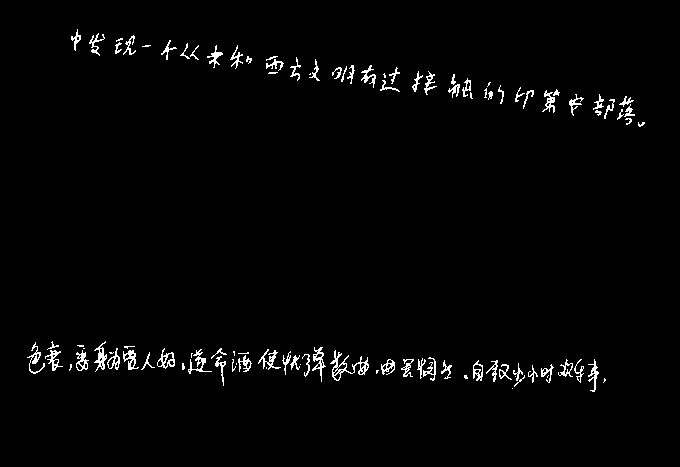 中发现一个从未和西方文明有过接触的印第安部落。
色衰,委身为贾人妇。遂命酒使快弹数曲,曲罢悯然。自叙少小时欢乐事,